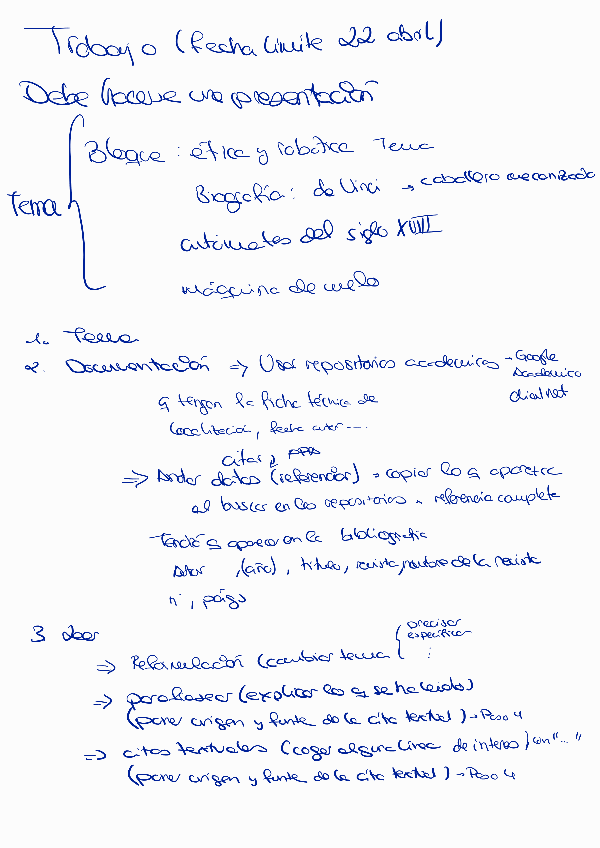 Trabajo (fecha limite 22 abril)
Debe hacerse una presentación
Tema
Bloque : ética y robótica Tema
Biografía : da Vinci → caballero mecanizado
autómatas del siglo XVIII
máquina de
1. Tema
2. Documentación ⇒ Usar repositorios académicos → Google
Académico
dialnet
q tengan la ficha técnica de
localización, fecha autor ....
citar y APA
⇒ Anotar datos (referenciar) → copiar lo q aparezca
al buscar en los repositorios → referencia completa
Tendrá q aparecer en la bibliografía
Autor , (año) , título, revista, nombre de la revista
nº , págs
3 Leer
⇒ Reformulación (cambiar tema { precisar
especificar
⋮
⇒ parafrasear (explicar lo q se ha leído)
(poner origen y fuente de la cita textual) → Paso 4
⇒ citas textuales (coger alguna línea de interes) con "..."
(poner origen y fuente de la cita textual) → Paso 4